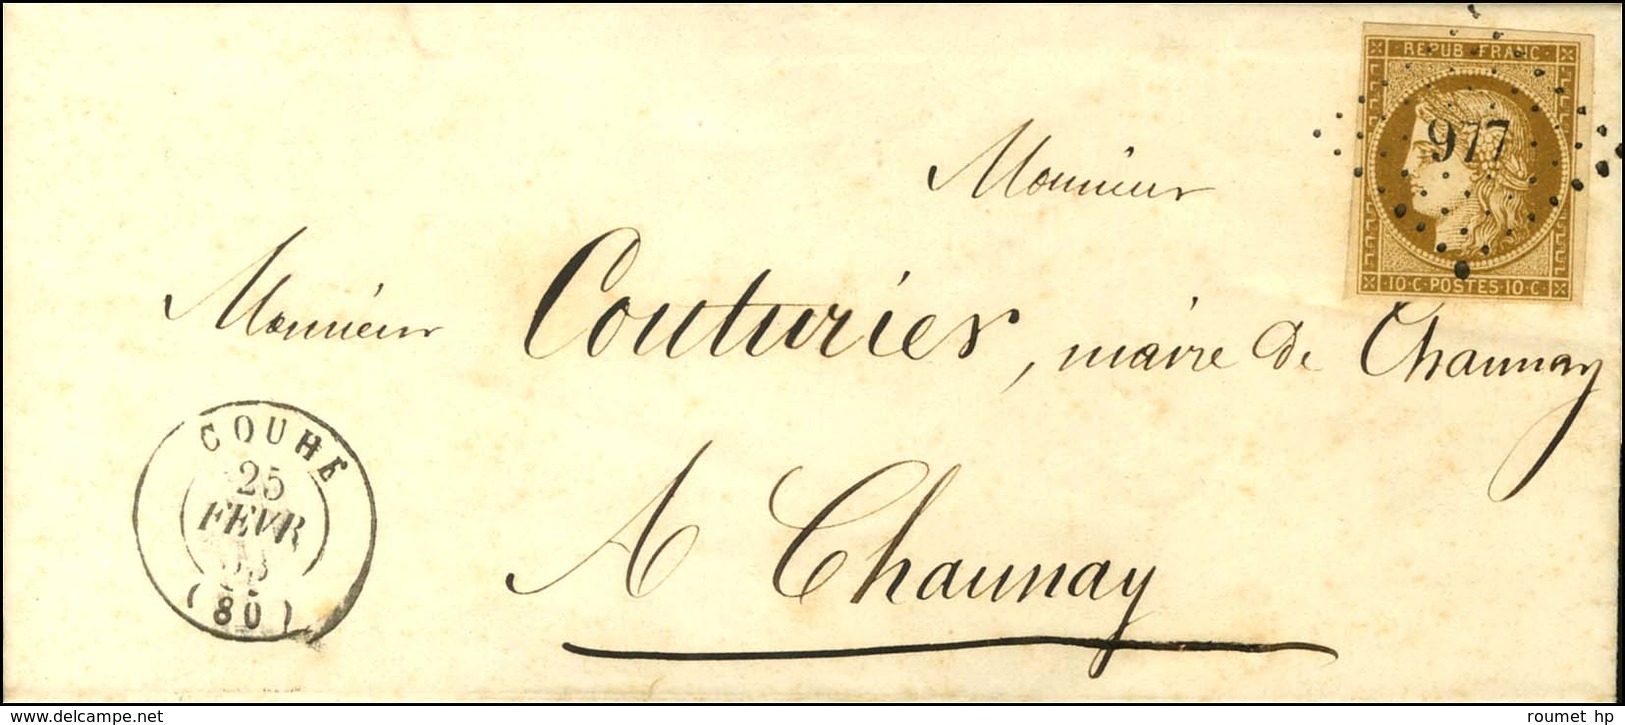 REPUB FRANC
977
10·C·POSTES·10·C·
Monsieur
Monsieur Couturier, maire de Chaunay
A Chaunay
COUHÉ
25
FEVR
53
(80)
www.delcampe.net
roumet hp